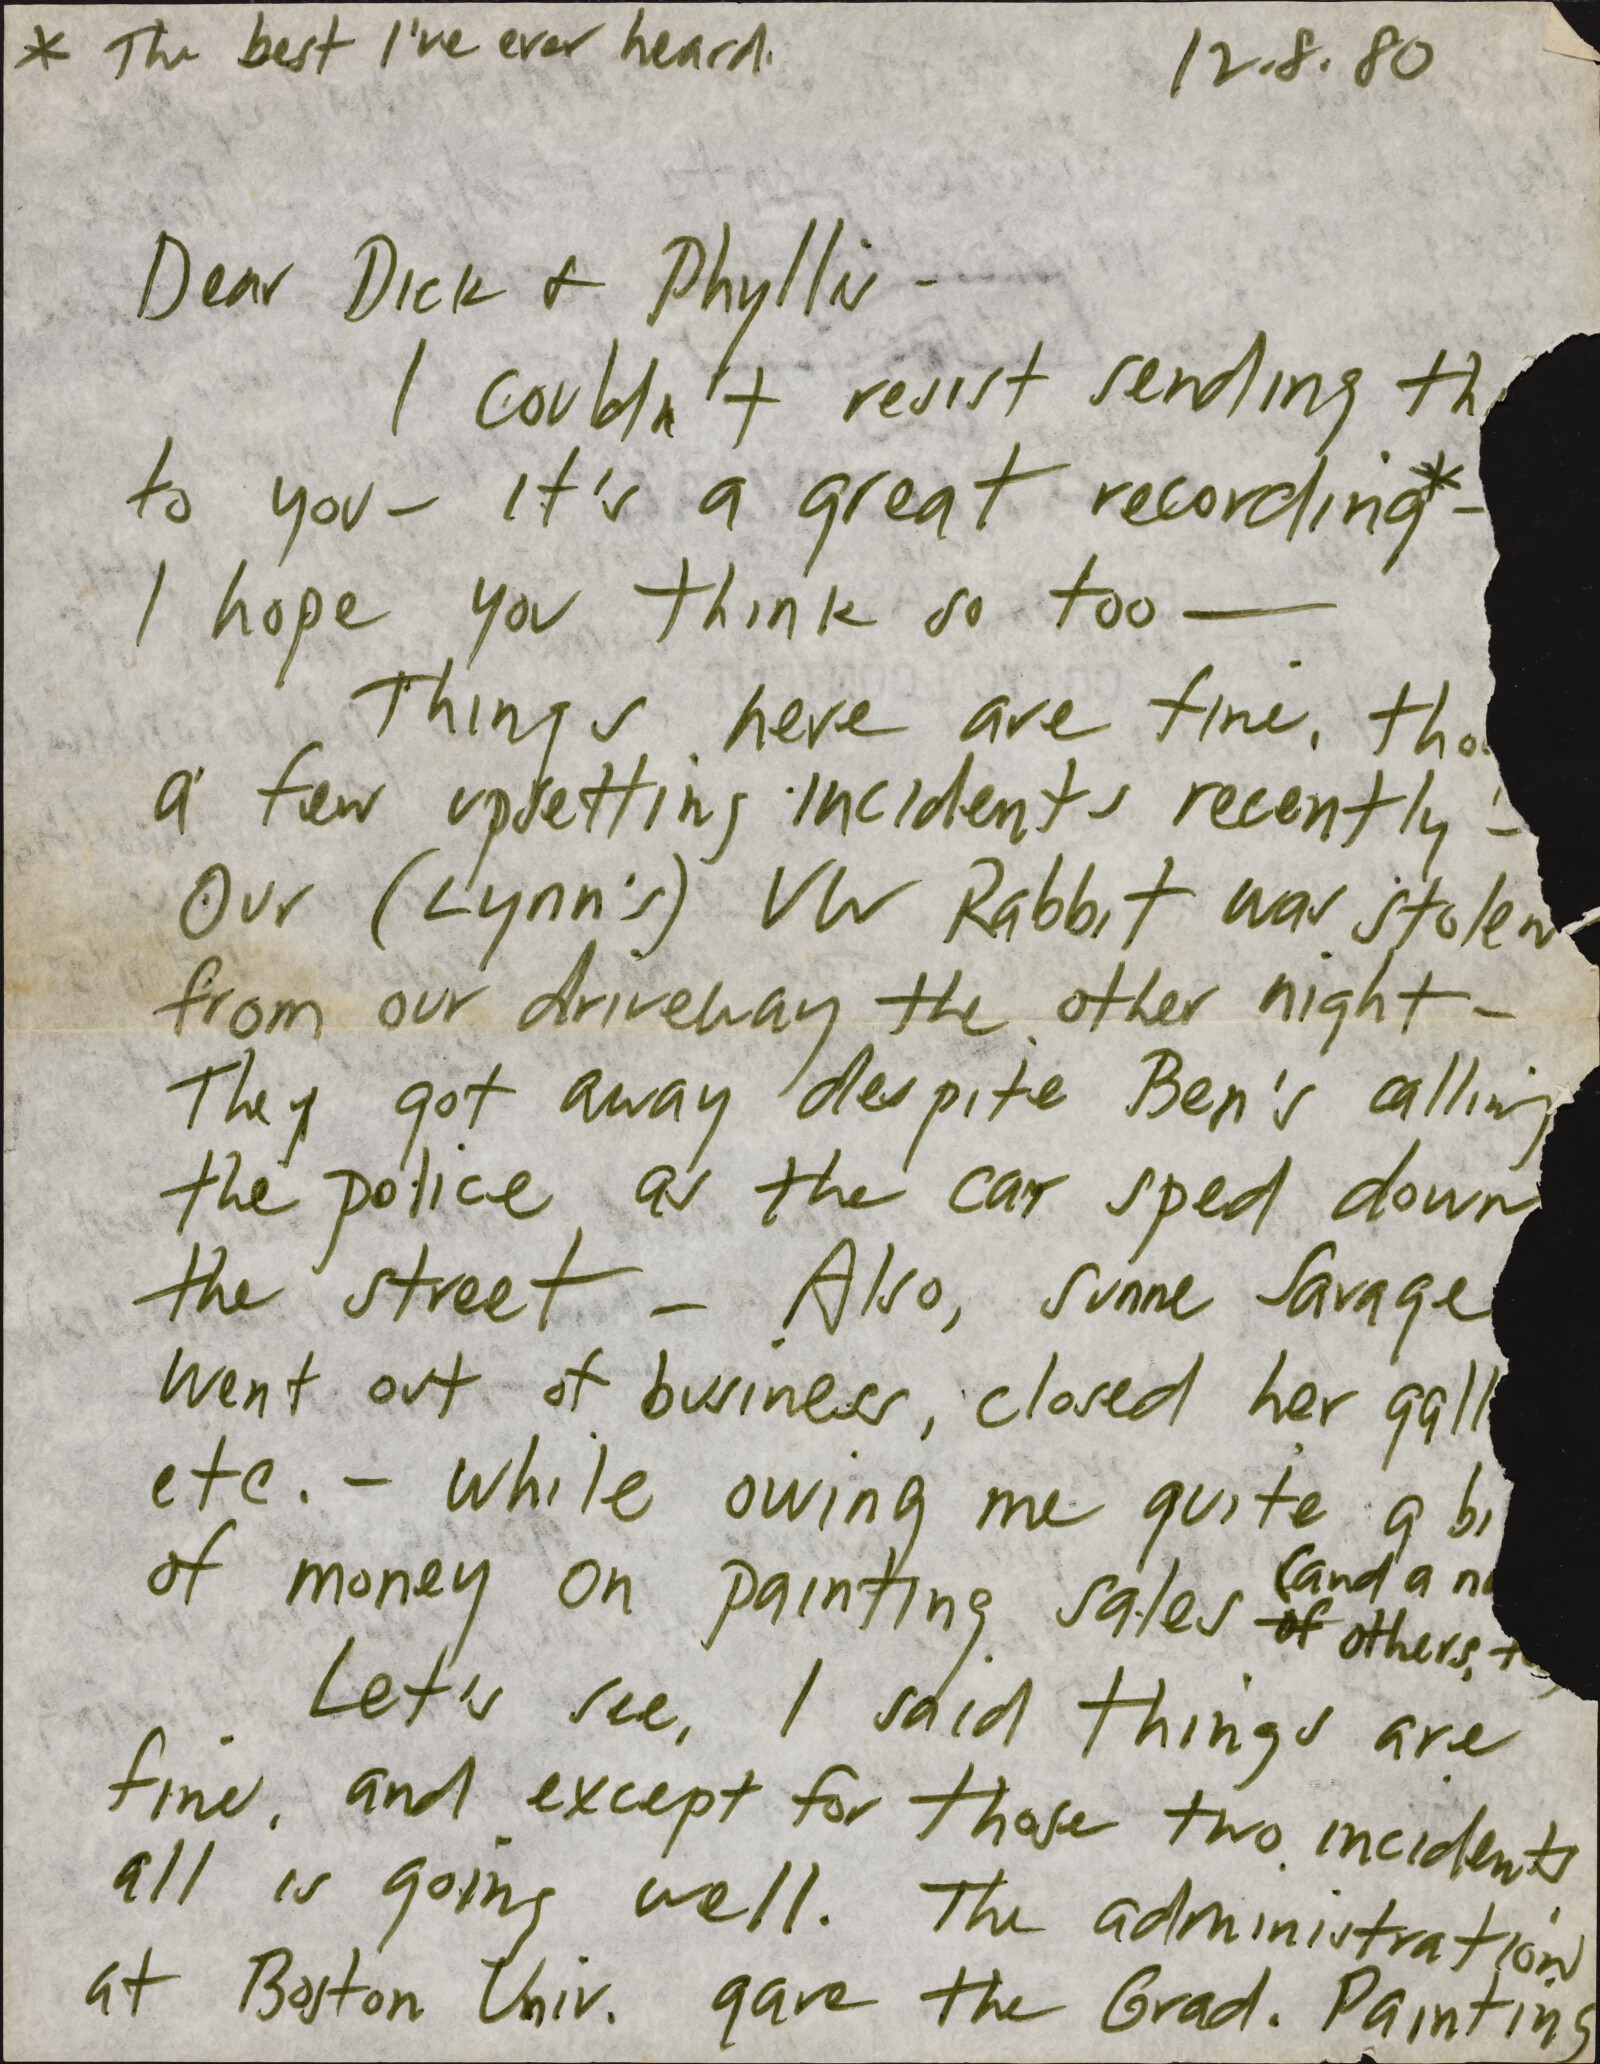 * The best I've ever heard.
12.8.80
Dear Dick & Phyllis -
I couldn't resist sending
to you - it's a great recording* -
I hope you think so too —
Things here are fine,
a few upsetting incidents recently -
Our (Lynn's) VW Rabbit was stolen
from our driveway the other night -
They got away despite Ben's calling
the police as the car sped down
the street - Also, Sunne Savage
went out of business, closed her
etc. - while owing me quite a
of money on painting sales (and a
of others,
Let's see, I said things are
fine, and except for those two incidents
all is going well. The administration
at Boston Univ. gave the Grad. Painting